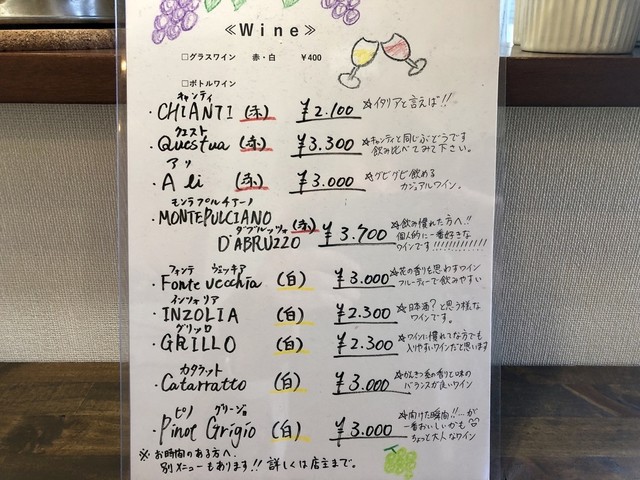 ≪Wine≫
□グラスワイン 赤・白 ¥400
□ボトルワイン
キャンティ
・CHIANTI (赤) ¥2.100 ☆イタリアと言えば!!
クエスト
・Questua (赤) ¥3.300 ☆キャンティと同じぶどうです
飲み比べてみて下さい。
アリ
・A li (赤) ¥3.000 ☆グビグビ飲める
カジュアルワイン。
モンテプルチアーノ
・MONTEPULCIANO
ダブルッツォ
D'ABRUZZO (赤) ¥3.700 ☆飲み慣れた方へ!!
個人的に一番好きな
ワインです!!!!!!!!!!!!
フォンテ ヴェッキア
・Fonte vecchia (白) ¥3.000 ☆花の香りを思わすワイン
フルーティーで飲みやすい
インツォリア
・INZOLIA (白) ¥2.300 ☆日本酒?と思う様な
ワインです。
グリッロ
・GRILLO (白) ¥2.300 ☆ワインに慣れてな方でも
入りやすいワインだと思います
カタラット
・Catarratto (白) ¥3.000 ☆かんきつ系の香りと味の
バランスが良いワイン
ピノ グリージョ
・Pinot Grigio (白) ¥3.000 ☆開けた瞬間!!…が
一番おいしいかも
ちょっと大人なワイン
※お時間のある方へ
別メニューもあります!! 詳しくは店主まで。